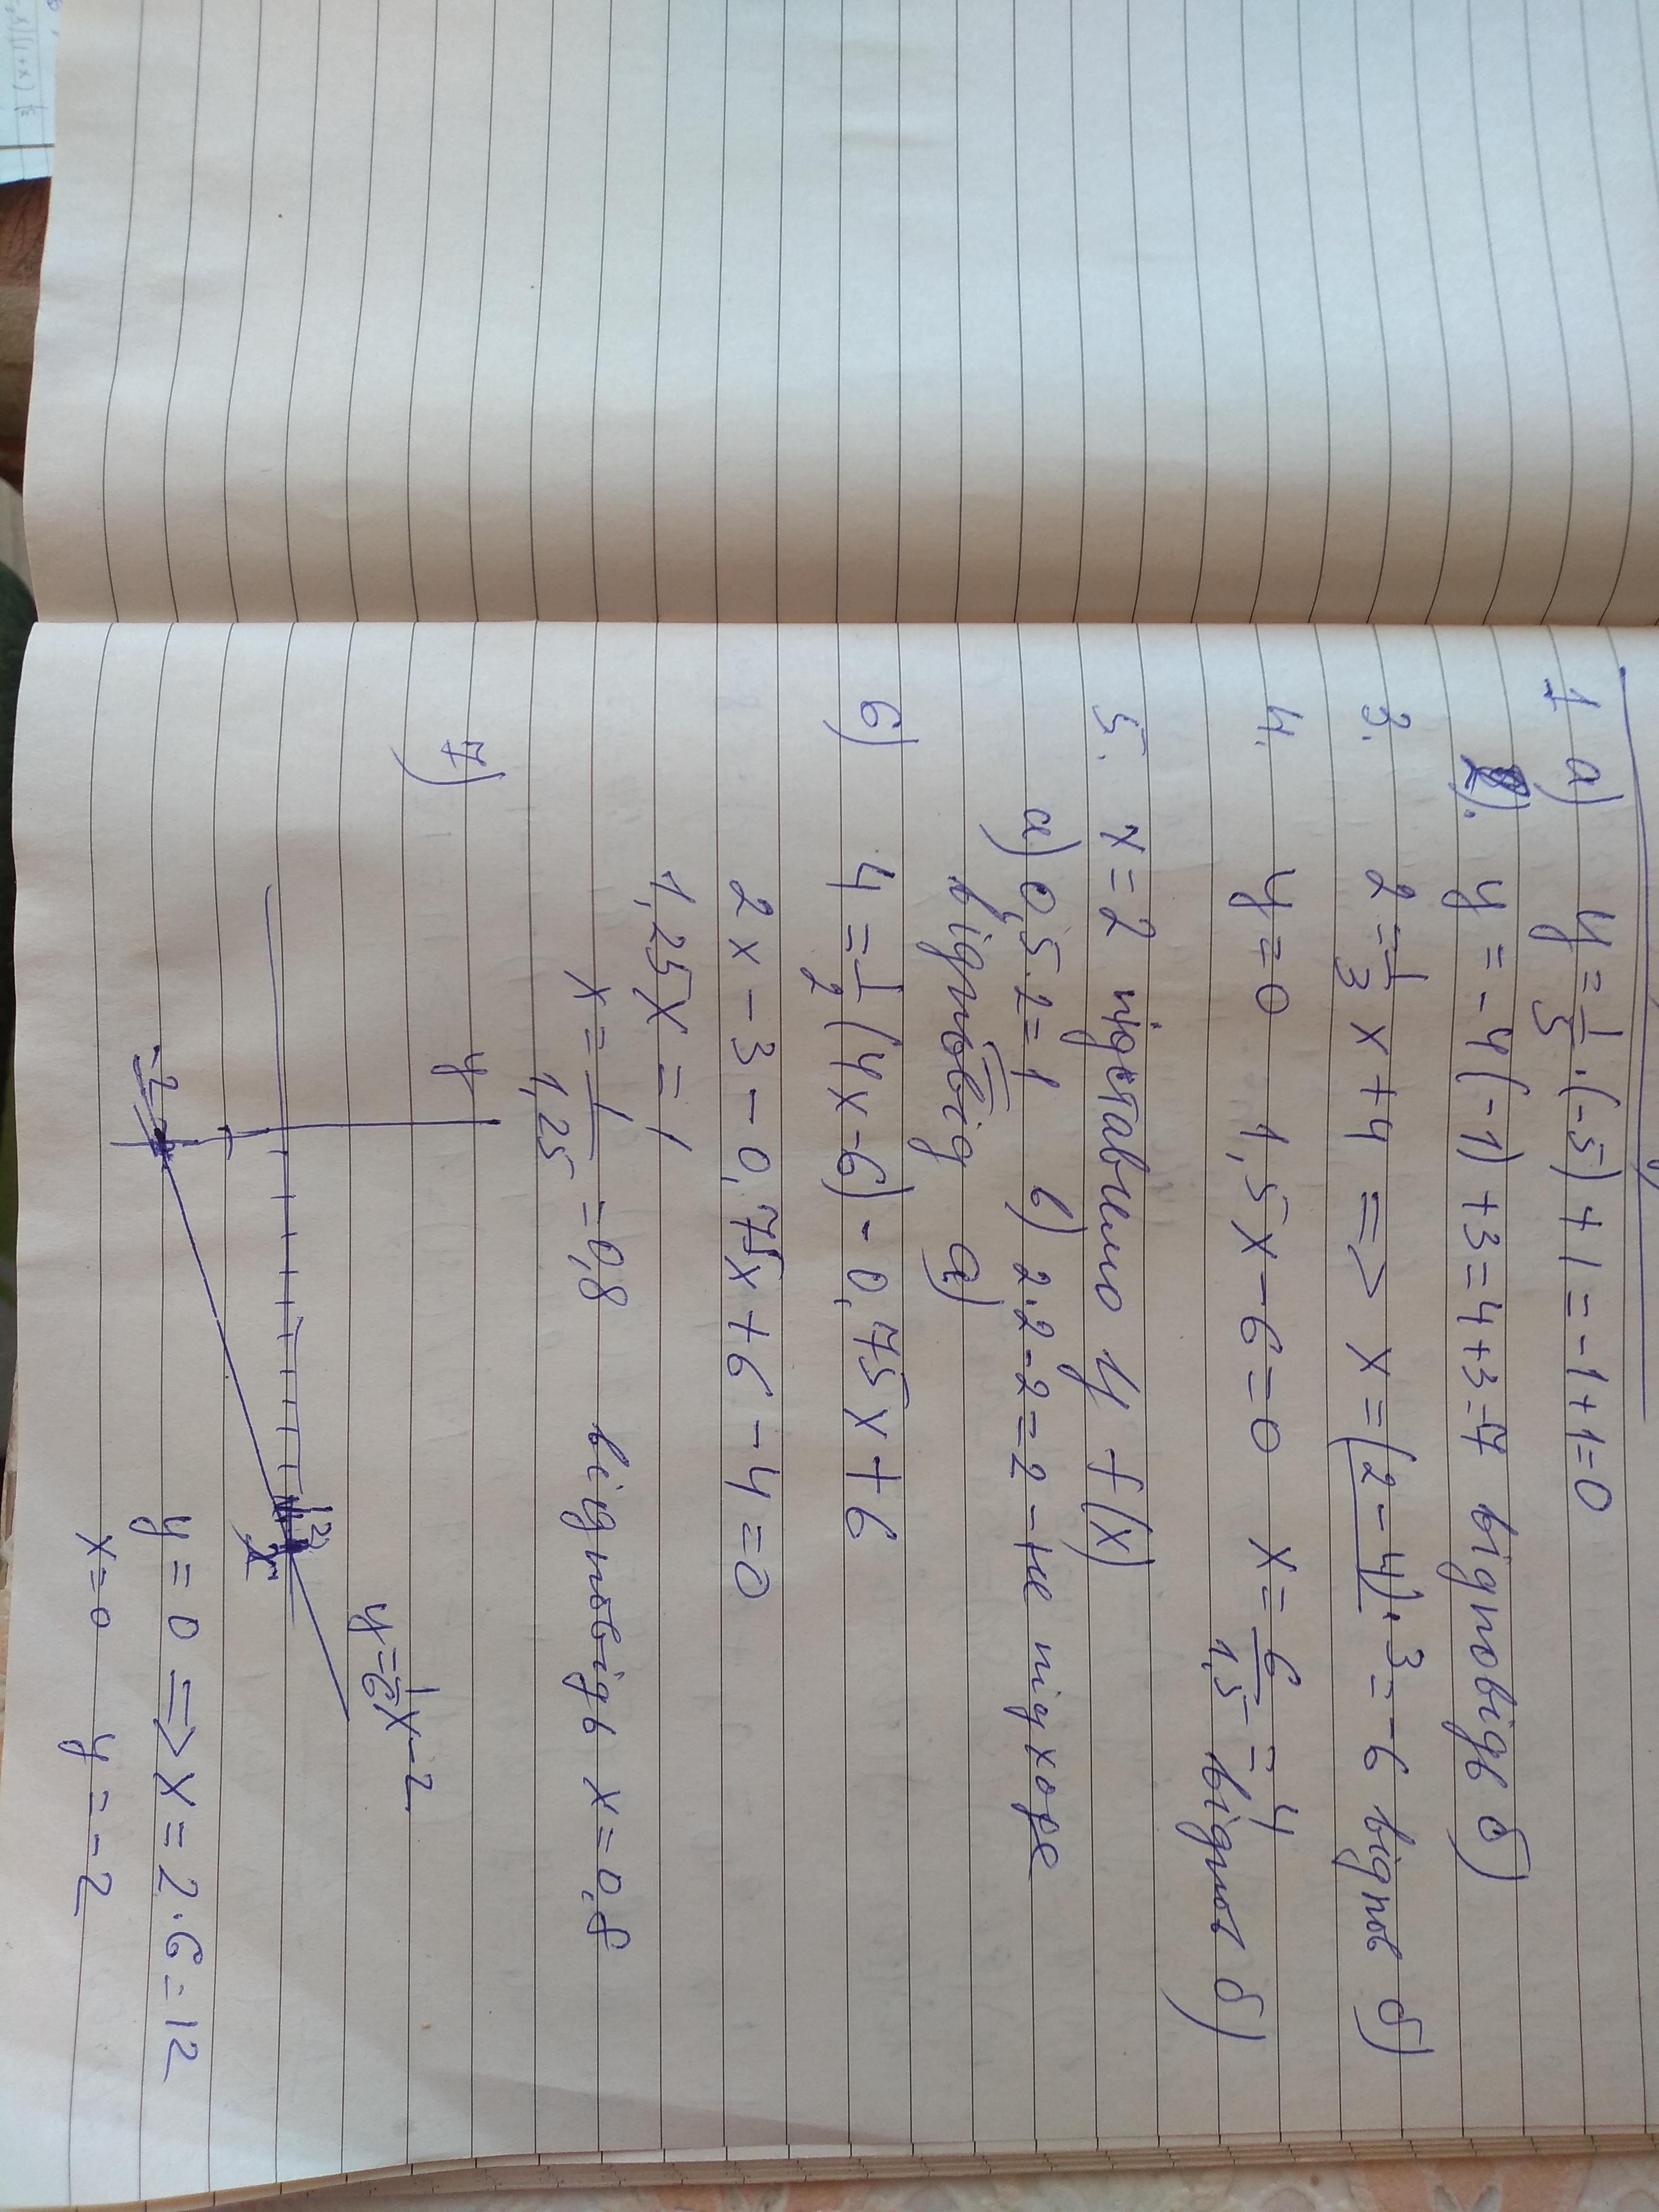 1 а) y = 1/5 · (-5) + 1 = -1 + 1 = 0
2). y = -4(-1) + 3 = 4 + 3 = 7 відповідь б)
3. 2 = 1/3 x + 4 => x = (2 - 4) · 3 = -6 відпов б)
4. y = 0 1,5x - 6 = 0 x = 6/1,5 = 4 відпов б)
5. x = 2 підставимо y f(x)
а) 0,5 · 2 = 1 в) 2 · 2 - 2 = 2 - не підходе
відповід а)
6) 4 = 1/2 (4x - 6) - 0,75x + 6
2x - 3 - 0,75x + 6 - 4 = 0
1,25x = 1
x = 1/1,25 = 0,8 відповідь x = 0,8
7) y
y = 1/6 x - 2
12
x
-2
y = 0 => x = 2 · 6 = 12
x = 0 y = -2